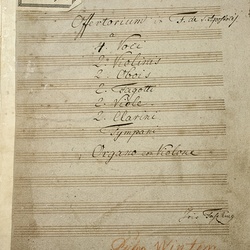 Offertorium
a
4 Voci
2 Violinis
2 Obois
2 Fagotti
2 Viole
2 Clarini
Tympani
Organo con Violone
Peter Winter